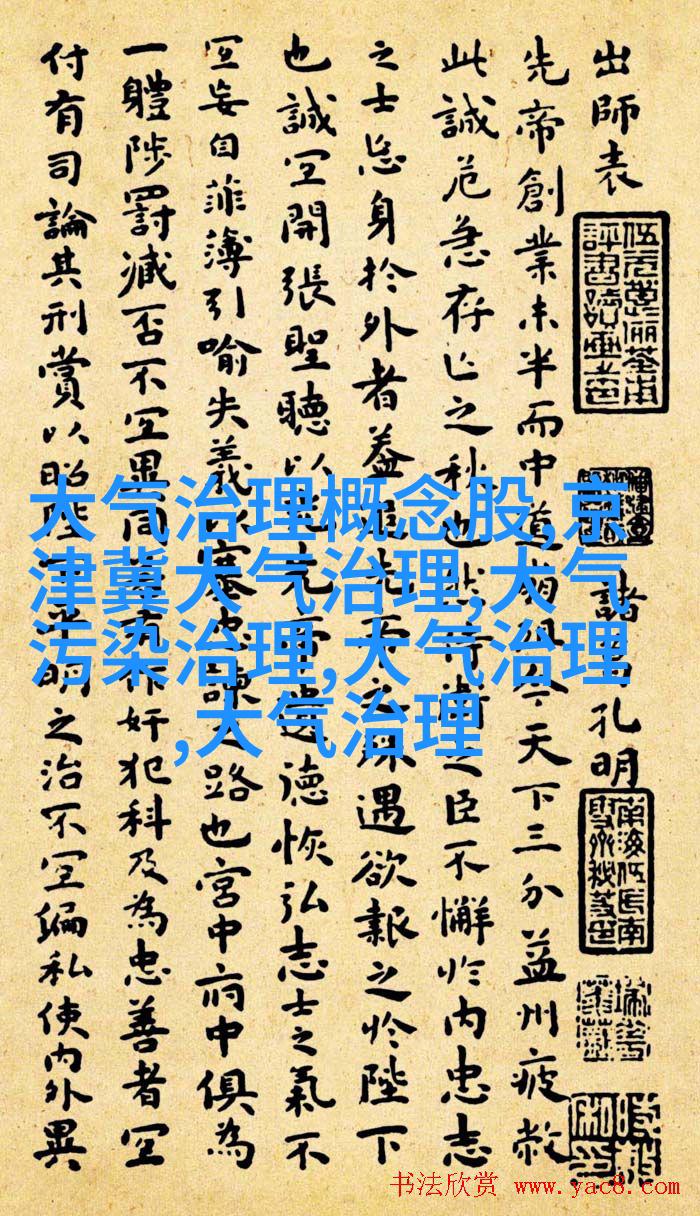 出師表
諸 孔明
先帝創業未半而中道崩殂今天下三分益州疲敝
此誠危急存亡之秋也然侍衛之臣不懈於内忠志
之士忘身於外者蓋追先帝之殊遇欲報之於陛下
也誠宜開張聖聽以光先帝遺德恢弘志士之氣不
宜妄自菲薄引喻失義以塞忠諫之路也宮中府中俱為
一體陟罰臧否不宜異同若有作奸犯科及為忠善者宜
付有司論其刑賞以昭陛下平明之治不宜偏私使内外異
大气治理概念股,京
津冀大气治理,大气
污染治理,大气治理
,大气治理
书法欣赏 www.yac8.com